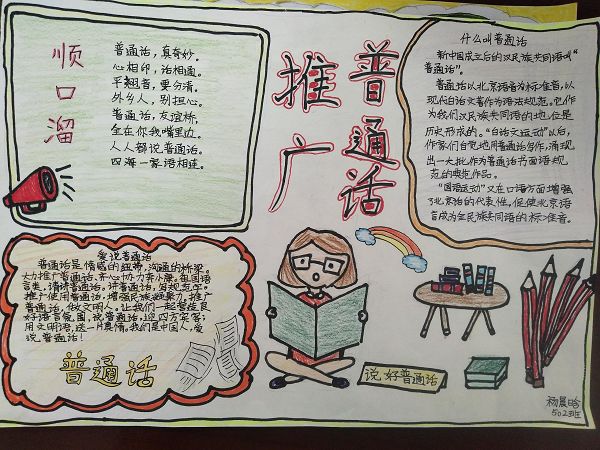 顺口溜
普通话，真奇妙。
心相印，话相通。
平翘音，要分清。
外乡人，别担心。
普通话，友谊桥，
全在你我嘴里边。
人人都说普通话。
四海一家语相连。
推广
普通话
什么叫普通话
新中国成立后的汉民族共同语叫
“普通话”。
普通话以北京语音为标准音，以
现代白话文著作为语法规范。它作
为我们汉民族共同语的地位是
历史形成的。“白话文运动”以后，
作家们自觉地用普通话写作，涌现
出一大批作为普通话书面语规
范的典范作品。
“国语运动”又在口语方面增强
了北京话的代表性，促使北京语
音成为全民族共同语的标准音。
爱说普通话
普通话是情感的纽带，沟通的桥梁。
大力推广普通话，齐心协力奔小康。
言类，请讲普通话。讲普通话，写规范字。
推广使用普通话，增强民族凝聚力。推广
普通话，做文明人。让我们一起营造良
好语言氛围，说普通话，迎四方宾客；
用文明语，送一片真情。我们是中国人，爱
说普通话！
普通话
说好普通话
杨晨晗
502班